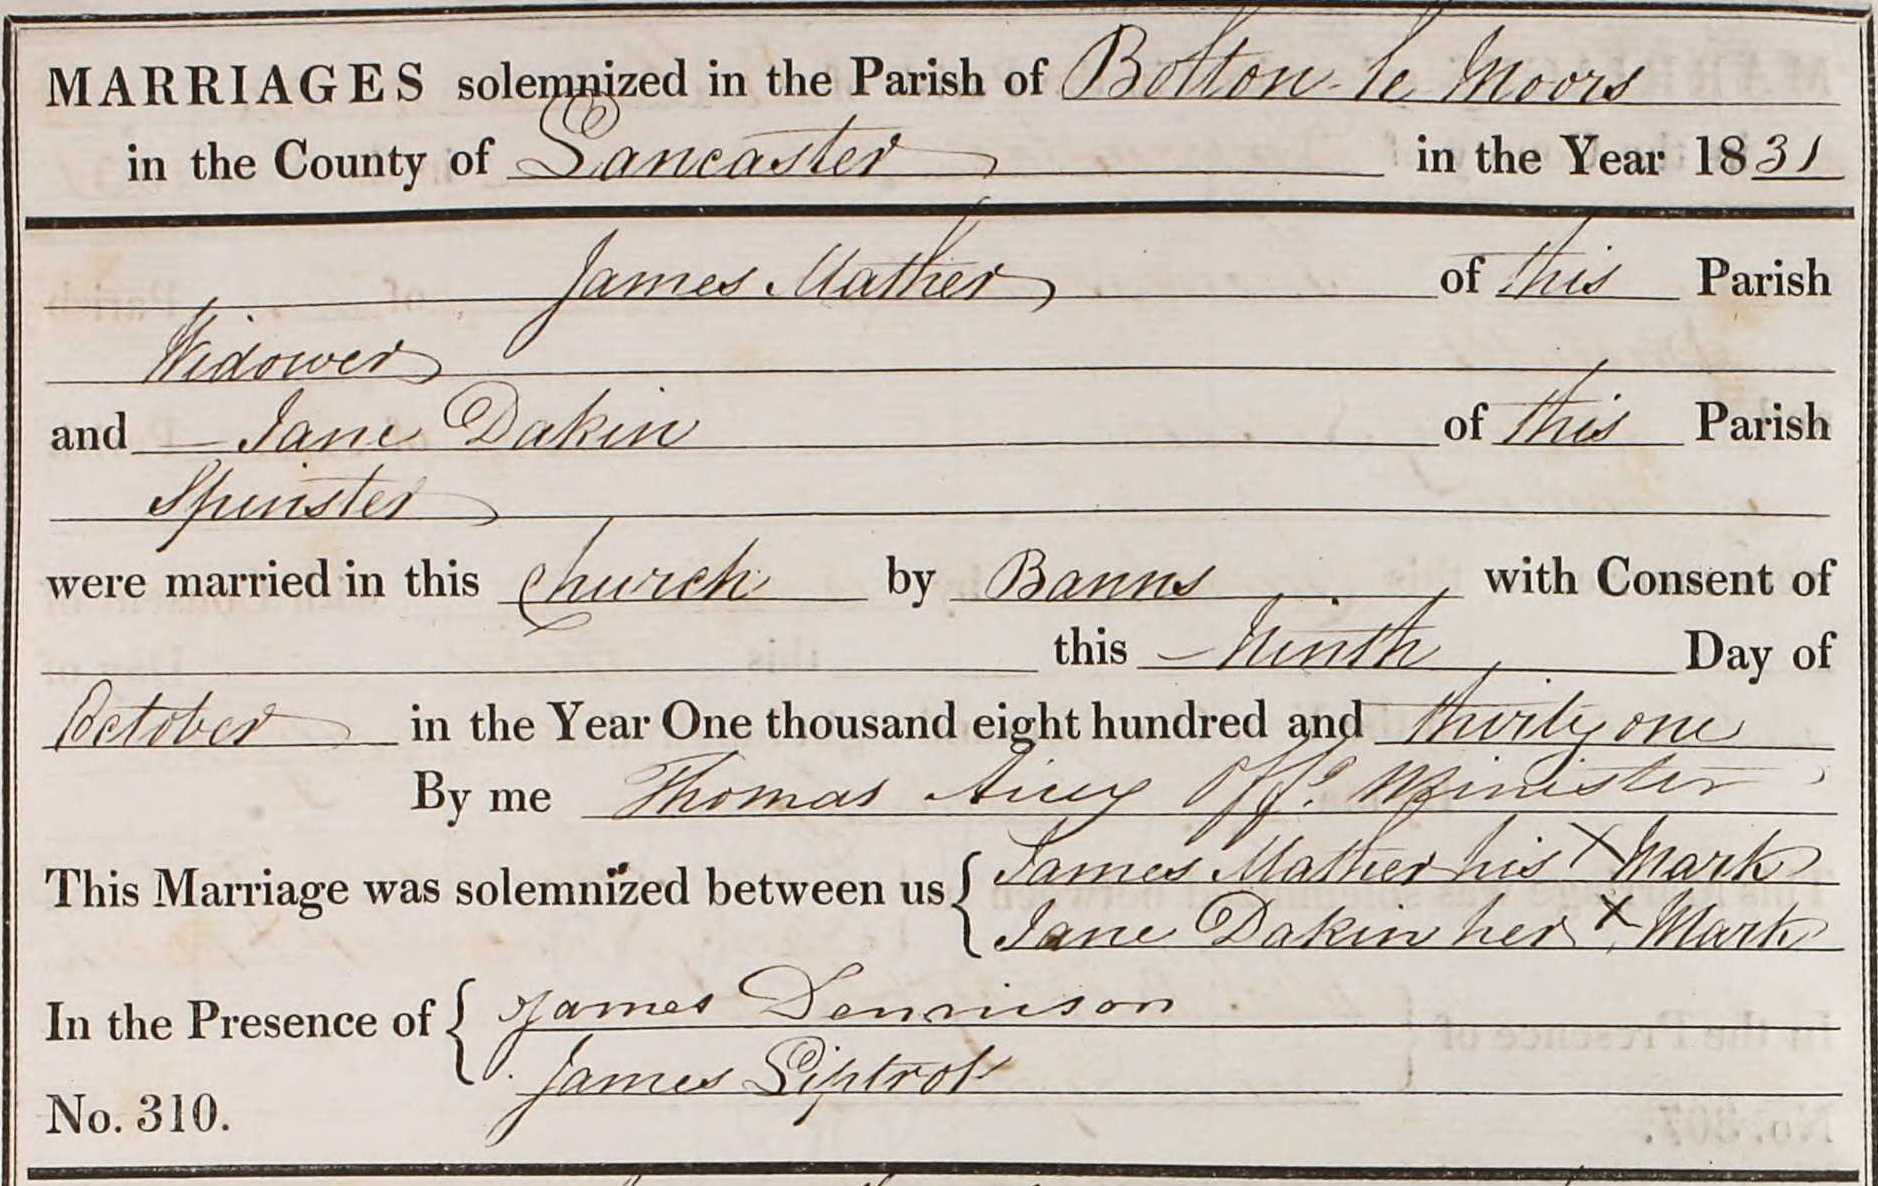 MARRIAGES solemnized in the Parish of Bolton-le Moors
in the County of Lancaster in the Year 1831
James Mather of this Parish
Widower
and Jane Dakin of this Parish
Spinster
were married in this Church by Banns with Consent of
this Ninth Day of
October in the Year One thousand eight hundred and thirty one
By me Thomas Airey Offg. Minister
This Marriage was solemnized between us { James Mather his X Mark
Jane Dakin her X Mark
In the Presence of { James Dennison
James Liptrot
No. 310.